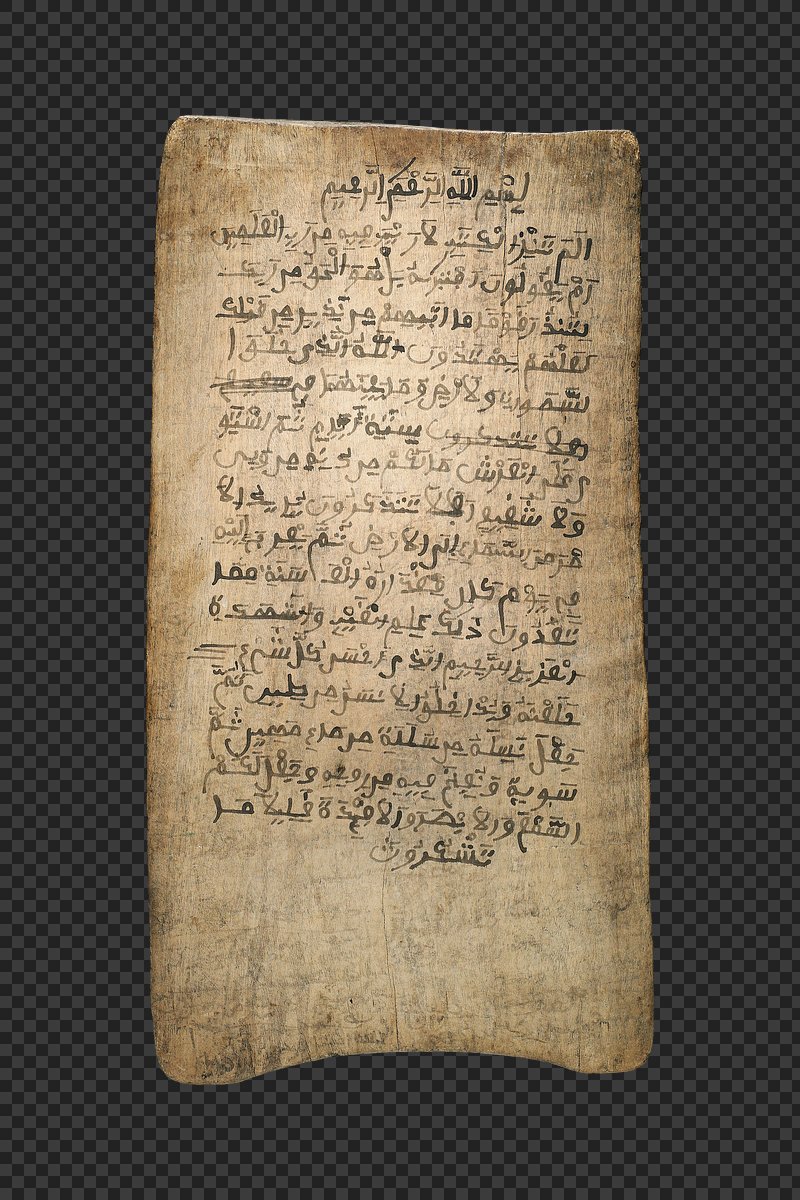 بسم الله الرحمن الرحيم
الم تنزيل الكتب لا ريب فيه من رب العلمين
ام يقولون افتريه بل هو الحق من ربك
لتنذر قوما ما اتيهم من نذير من قبلك
لعلهم يهتدون الله الذي خلق ا
لسموت والارض وما بينهما في
افلا تتذكرون ستة ايام ثم استو
ى على العرش ما لكم من دونه من ولي
ولا شفيع افلا تتذكرون يدبر الا
مر من السماء الى الارض ثم يعرج اليه
في يوم كان مقداره الف سنة مما
تعدون ذلك علم الغيب والشهدة
العزيز الرحيم الذي احسن كل شيء
خلقه وبدا خلق الانسن من طين ثم
جعل نسله من سللة من ماء مهين ثم
سويه ونفخ فيه من روحه وجعل لكم
السمع والابصر والافدة قليلا ما
تشكرون